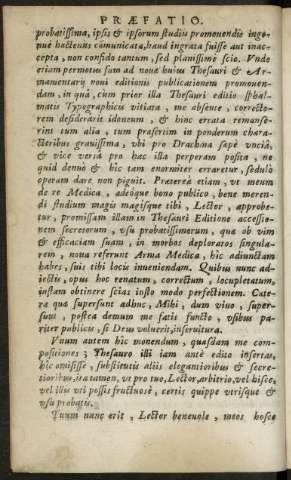 PRÆFATIO.
probatissima, ipsis & ipsorum studiis promovendis inge-
nuè hactenus communicata, haud ingrata fuisse aut inac-
cepta, non confido tantum, sed planissimè scio. Vnde
etiam permotus sum ad novæ huius Thesauri & Ar-
mamentarij noui editionis publicationem promouen-
dam, in quâ, cùm prior illa Thesauri editio sphal-
matis Typographicis vitiata, me absente, correcto-
rem desiderârit idoneum, & hinc errata remanse-
rint tum alia, tum præsertim in ponderum chara-
cteribus grauissima, vbi pro Drachma sæpè vncia,
& vice versâ pro hac illa perperam posita, ne
quid denuò & hic tam enormiter erraretur, sedulò
operam dare non piguit. Prætereà etiam, vt meum
de re Medica, adeòque bono publico, bene meren-
di studium magis magisque tibi, Lector, approbe-
tur, promissam illam in Thesauri Editione accessio-
nem secretorum, vsu probatissimorum, quæ ob vim
& efficaciam suam, in morbos deploratos singula-
rem, noua referunt Arma Medica, hîc adiunctam
habes, suis tibi locis inueniendam. Quibus nunc ad-
iectis, opus hoc renatum, correctum, locupletatum,
iustam obtinere scias isto modo perfectionem. Cæte-
ra quæ supersunt adhuc, Mihi, dum viuo, super-
sunt, postea demum me fatis functo, vsibus pa-
riter publicis, si Deus voluerit, inseruitura.
Vnum autem hîc monendum, quasdam me com-
positiones; Thesauro illi iam antè edito insertas,
hîc omisisse, substitutis aliis elegantioribus & secre-
tioribus, ita tamen, vt pro tuo, Lector, arbitrio, vel hisce,
vel illis vti possis fructuosè, certis quippe virisque &
vsu probatis.
Tuum nunc erit, Lector beneuole, meos hosce